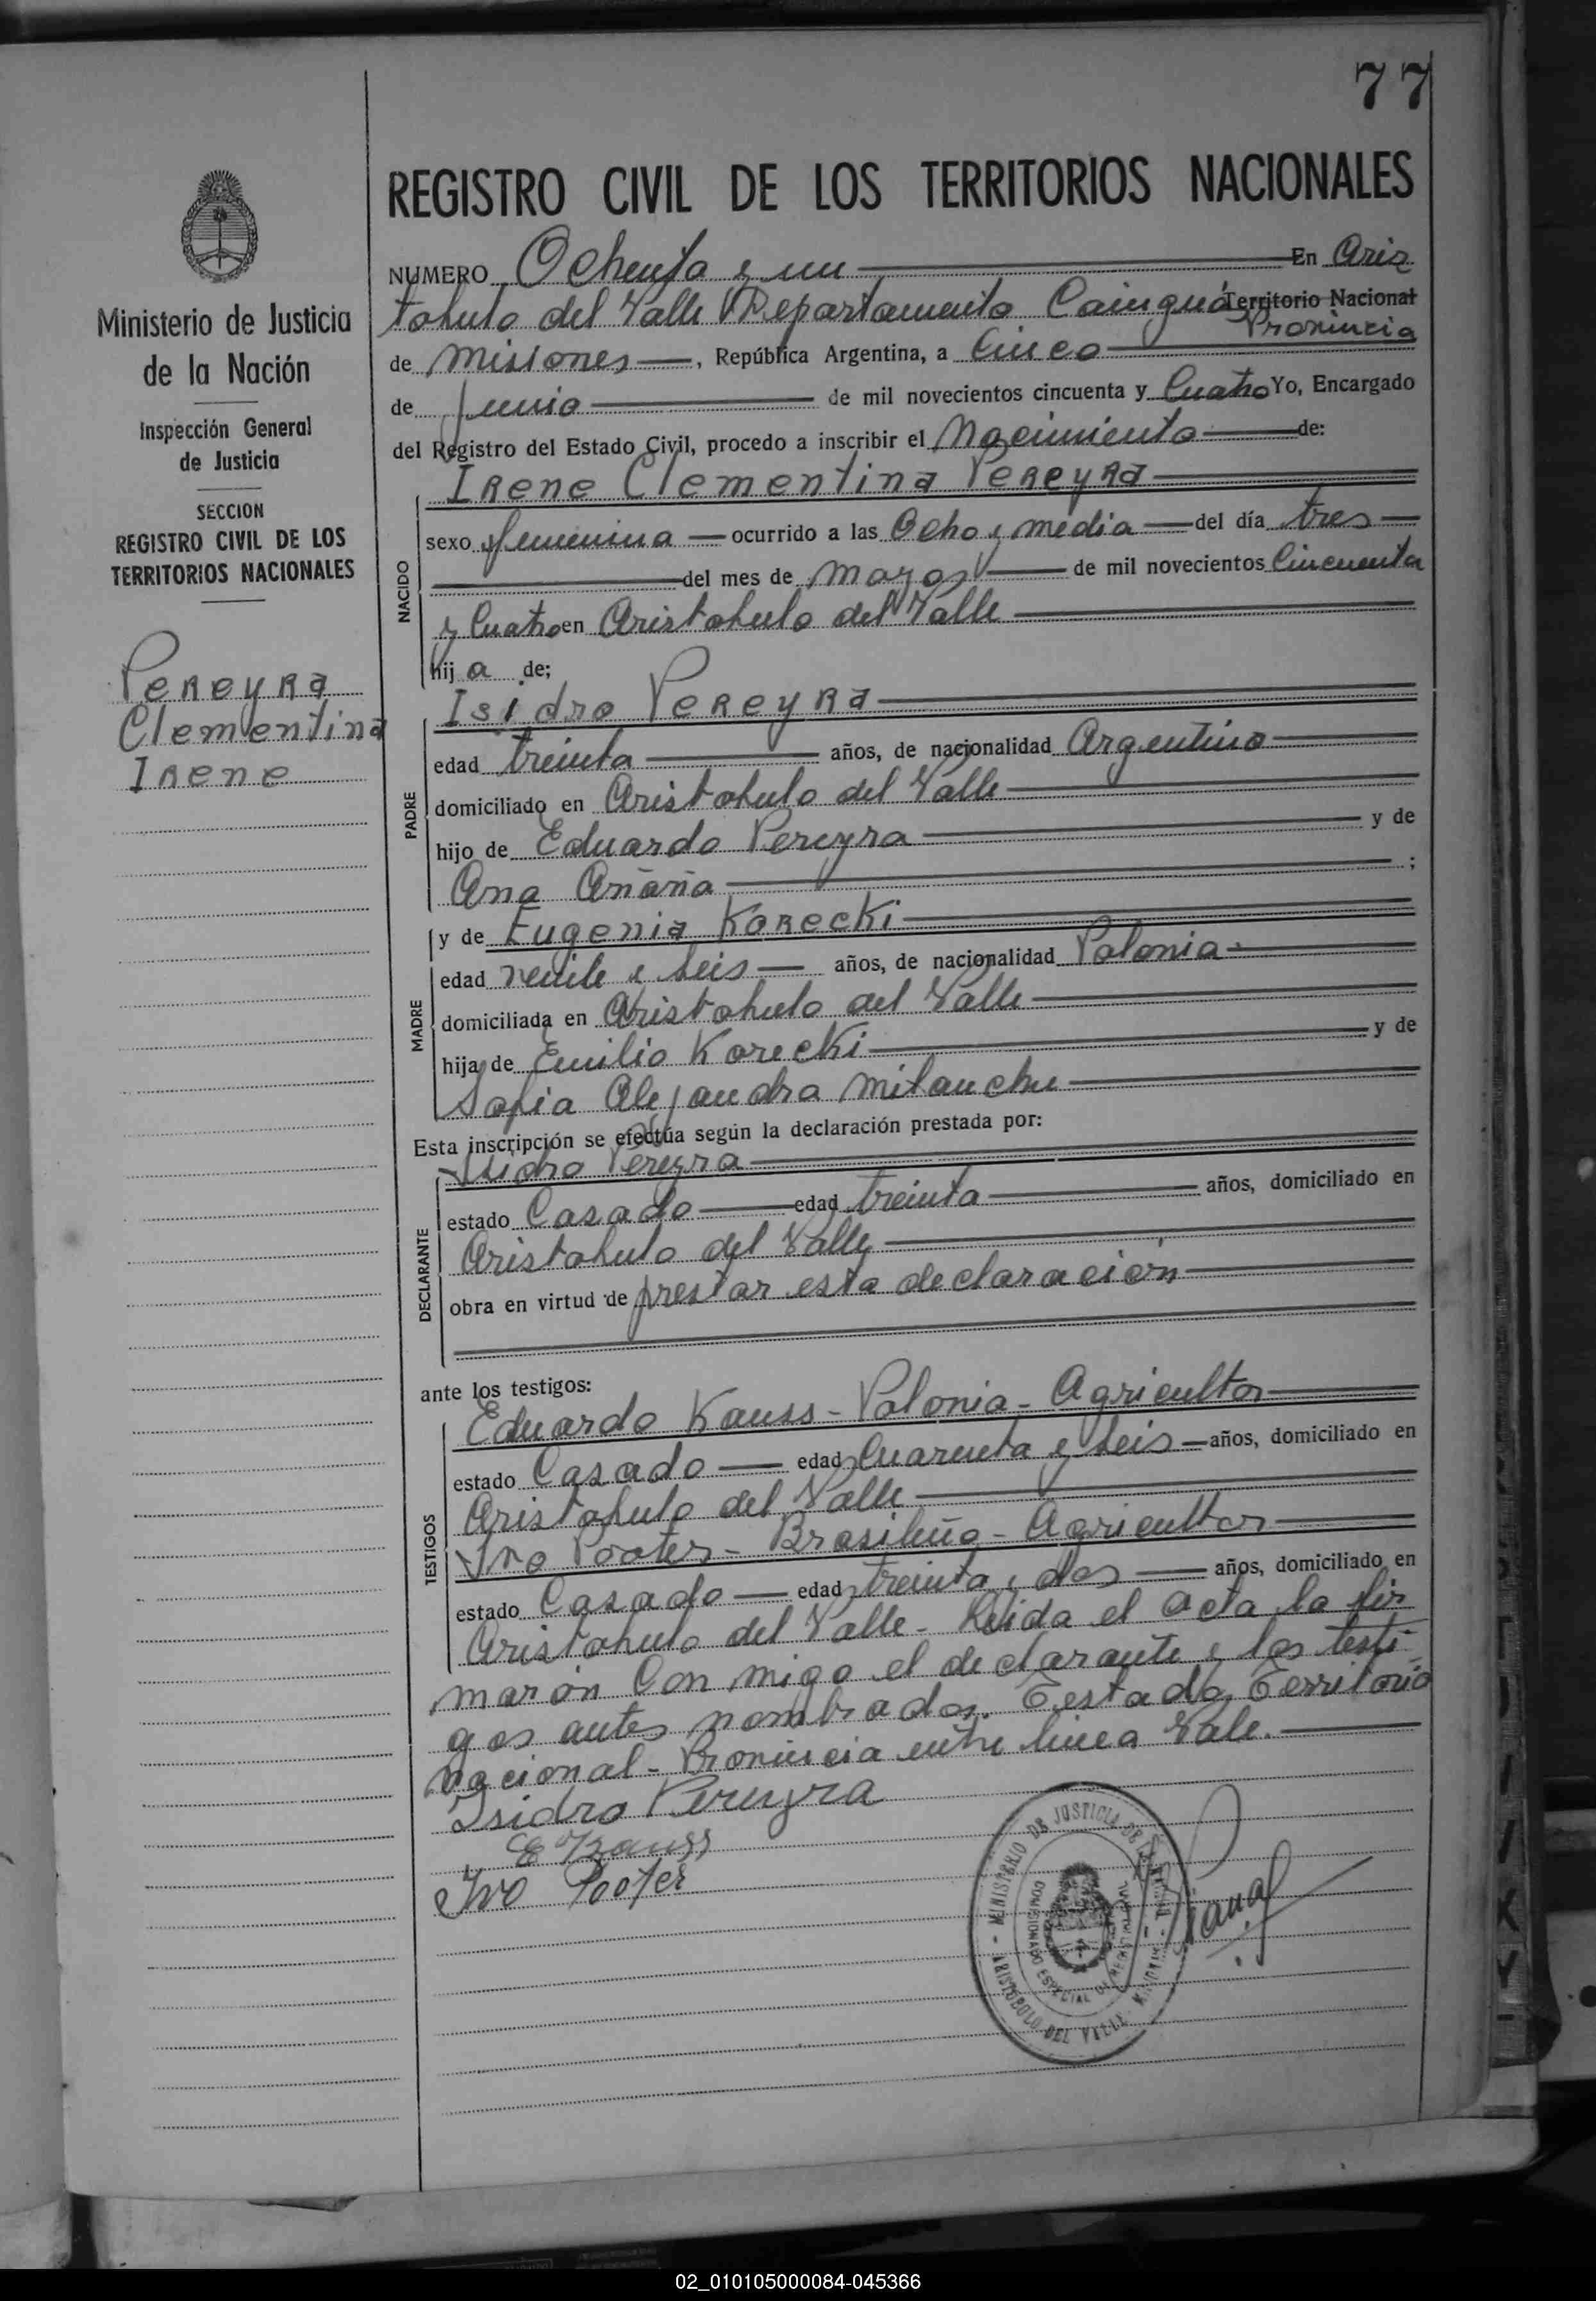 77
REGISTRO CIVIL DE LOS TERRITORIOS NACIONALES
Ministerio de Justicia
de la Nación
Inspección General
de Justicia
SECCION
REGISTRO CIVIL DE LOS
TERRITORIOS NACIONALES
Pereyra
Clementina
Irene
NUMERO Ochenta y un En Aris
tobulo del Valle Departamento Cainguá Territorio Nacional
Provincia
de Misiones, República Argentina, a Cinco
de Junio de mil novecientos cincuenta y Cuatro Yo, Encargado
del Registro del Estado Civil, procedo a inscribir el Nacimiento de:
Irene Clementina Pereyra
sexo femenina ocurrido a las Ocho y media del día tres
del mes de de mil novecientos Cincuenta
y Cuatro en Aristobulo del Valle
hij a de;
NACIDO
Isidro Pereyra
edad treinta años, de nacionalidad Argentino
domiciliado en Aristobulo del Valle
hijo de Eduardo Pereyra y de
Ana Añaña ;
PADRE
y de Eugenia Korecki
edad veinte y seis años, de nacionalidad Polonia
domiciliada en Aristobulo del Valle
hija de Emilio Korecki y de
Sofia Alejandra
MADRE
Esta inscripción se efectúa según la declaración prestada por:
Isidro Pereyra
estado Casado edad treinta años, domiciliado en
Aristobulo del Valle
obra en virtud de prestar esta declaración
DECLARANTE
ante los testigos:
Eduardo Kauss - Polonia - Agricultor
estado Casado edad Cuarenta y seis años, domiciliado en
Aristobulo del Valle
Ivo Pooter - Brasileño - Agricultor
estado Casado edad treinta y dos años, domiciliado en
Aristobulo del Valle - Leida el acta la fir
TESTIGOS
maron Con migo el declarante y los testi-
gos antes nombrados. Testado Territorio
Nacional - Provincia entre linea Vale.
Isidro Pereyra
Ivo Pooter
MINISTERIO DE JUSTICIA DE LA
COMISIONADO ESPECIAL
ARISTOBULO DEL VALLE
02_010105000084-045366